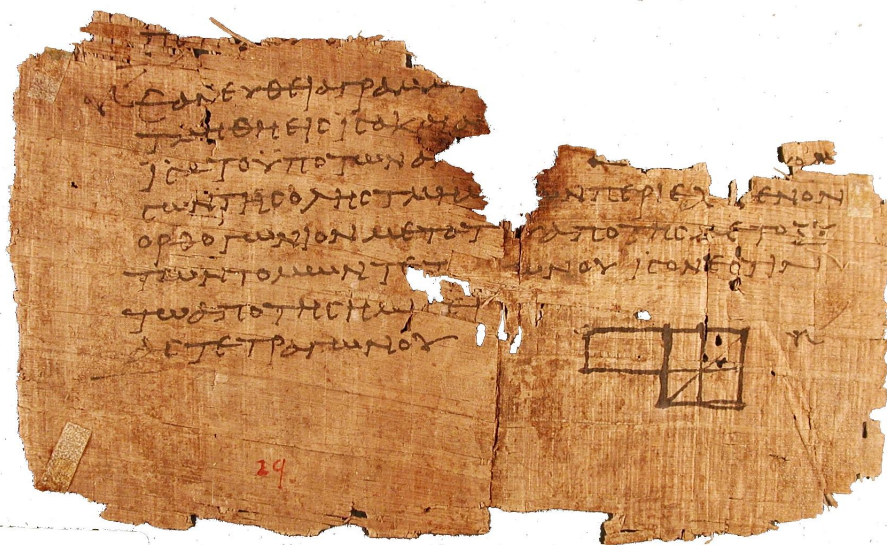 ΕΑΝ ΕΥΘΕΙΑ ΓΡΑΜΜ
ΤΜΗΘΗ ΕΙϹ ΙϹΑ ΚΑΙ ΑΝ
ΙϹΑ ΤΟ ΥΠΟ ΤΩΝ ΑΝ
ϹΩΝ ΤΗϹ ΟΛΗϹ ΤΜΗΜ ΩΝ ΠΕΡΙΕΧ ΕΝΟΝ
ΟΡΘΟΓΩΝΙΟΝ ΜΕΤΑ ΤΟΥ ΑΠΟ ΤΗϹ ΜΕΤΟΞΥ
ΤΩΝ ΤΟΜΩΝ ΤΕΤ ΩΝΟΥ ΙϹΟΝ ΕϹΤΙΝ
ΤΩ ΑΠΟ ΤΗϹ ΗΜΙ ΕΙ
ΑϹ ΤΕΤΡΑΓΩΝΟΥ
29